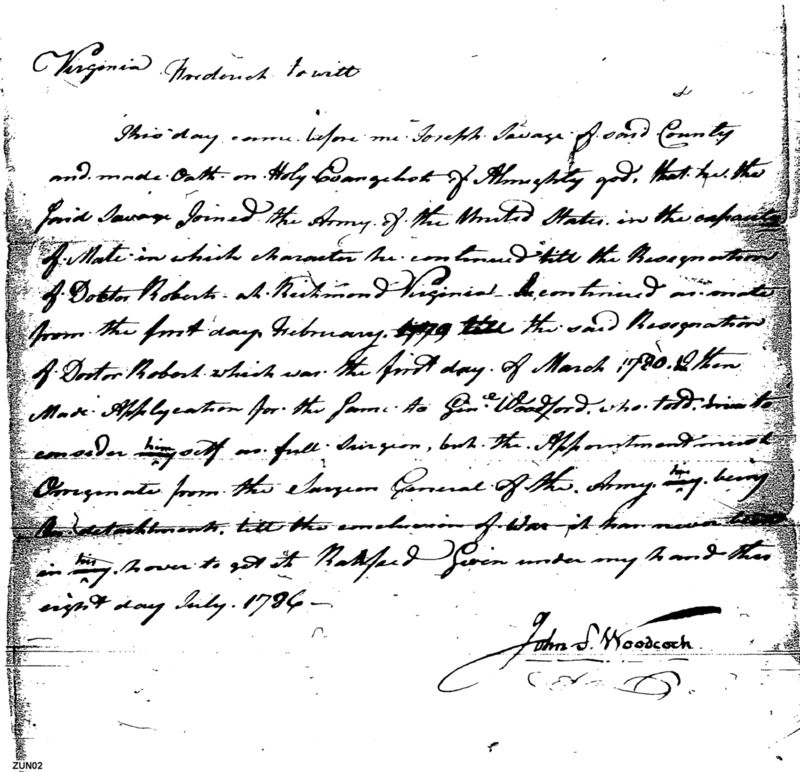 Virginia Frederick to witt
This day came before me Joseph Savage of said County
and made Oath on Holy Evangelist of Almighty god, that he the
said Savage Joined the Army of the United States in the capacity
of Mate in which character he continued till the Resegnation
of Doctor Roberts at Richmond Virginia continued as mate
from the first day February 1779 till the said Resegnation
of Doctor Robert which was the first day of March 1780. I then
Made Applycation for the same to Genl Woodford, who told him to
consider him myself as full Surgeon, but the Appointment must
Oreginate from the Surgeon General of the Army his my being
on detachments, till the conclusion of War it has never been
in his my power to get it Ratifed Given under my hand this
eight day July. 1786
John S. Woodcock
ZUN02